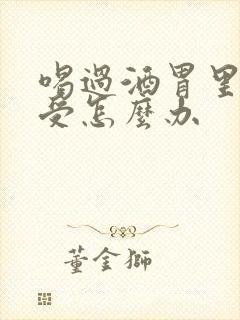 喝過酒胃里
受怎麼办
董金獅